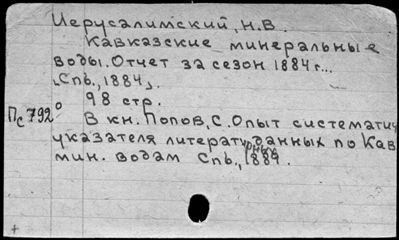 Иерусалимский, Н.В.
Кавказские минеральные
воды. Отчет за сезон 1884 г...
[Спб., 1884].
98 стр.
Пс 792°
В кн. Попов, С. Опыт систематич
указателя литературных данных по Кав
мин. водам Спб., 1889.